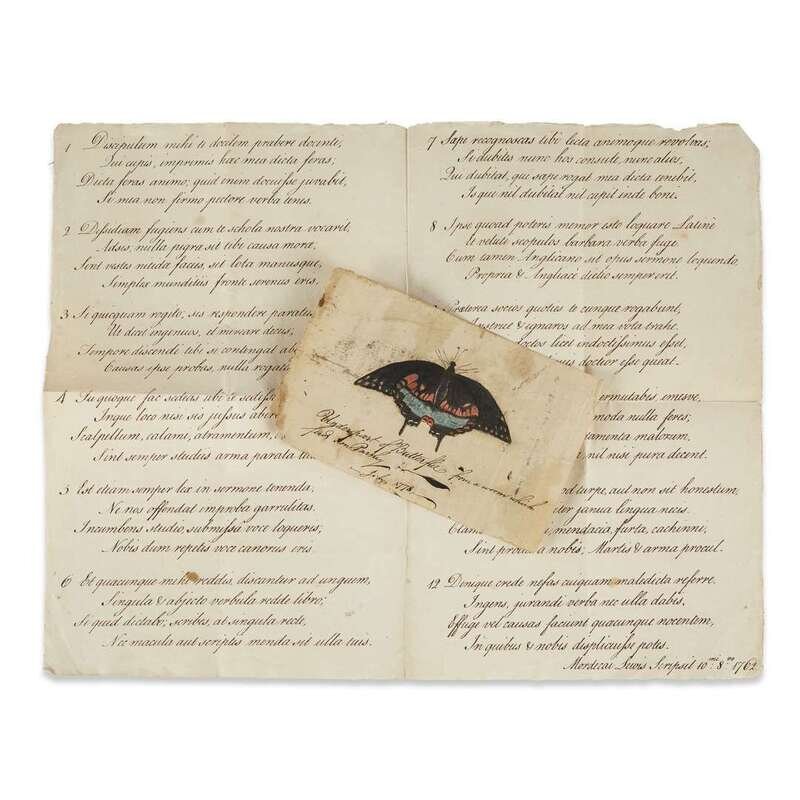 1 Discipulum mihi te docilem præbere docente,
Qui cupis, imprimis hæc mea dicta feras;
Dicta feras animo; quit enem docuisse juvabit,
Si mea non firmo pectore verba tenis.
2 Desudiam fugiens cum te schola nostra vocarit,
Adsis, nulla pigra sit tibi causa mora,
Sint vestis nitida facies, sit lota manusque,
Simplex munditiis fronte serenus eris.
3 Si quicquam rogito, sis respondere paratus
Ut decet ingenuos, et mereare decus,
Tempore discende tibi si contingat abe
Causas ipse probas, nulla rogati
4 Tu quoque fac sedeas ubi te
Inque loco nisi sis jussus abere
Scalpillum, calami, atramentum,
Sint semper studiis arma parata tu
5 Est etiam semper lex in sermone tenenda,
Ne nos offendat improba garrulitas.
Incumbens studio, submissa voce loqueres,
Nobis dum repetis voce canorus eris.
6 Et quæcunque mihi reddis, discantur ad unguem,
Singula & abjecto verbula redde libro;
Si quid dictabo, scribes, at singula recte,
Nec macula aut scriptis menda sit ulla tuis.
7 Sæpe recognoscas tibi lecta animoque revolvas;
Si dubitis nunc hos consule, nunc alios,
Qui dubitat, qui sæpe rogat mea dicta tenebit,
Is que nil dubitat nil capit inde boni.
8 Ipse quoad poteris memor esto loquare Latinè
et velute scopulos barbara verba fuge.
Cum tamen Anglicano sit opus sermone loquendo,
Propria & Anglicè dictio semper erit.
Præterea socios quoties te cunque rogabunt,
Instrue & ignaros ad mea vota trahe,
doctos licet indoctissimus esset,
doctior esse queat.
permutabis, emisve,
moda nulla feres;
menta malorum,
nil nisi pura dicent.
turpe, aut non sit honestum,
janua lingua necis.
Clamo mendacia, furta, cachinni,
Sint procul a nobis; Martis & arma procul.
12 Denique crede nefas cuiquam maledicta referre.
Ingens, jurandi verba nec ulla dabis,
Effuge vel causas faciunt quæcunque nocentem,
In quibus & nobis displicuisse potes.
Mordecai Lewis Scripsit 10mo 8vo 1762
of Butterflie from a worm which